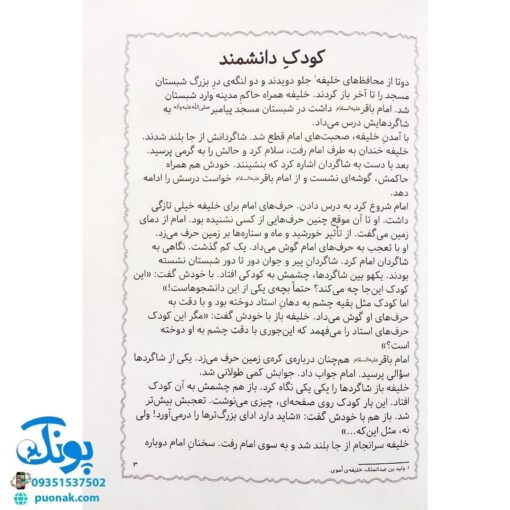 کودکِ دانشمند
دوتا از محافظ‌های خلیفه۱ جلو دویدند و دو لنگه‌ی درِ بزرگ شبستان
مسجد را تا آخر باز کردند. خلیفه همراه حاکمِ مدینه وارد شبستان
شد. امام باقر علیه‌السلام داشت در شبستان مسجد پیامبر صلی‌الله‌علیه‌وآله به
شاگردهایش درس می‌داد.
با آمدنِ خلیفه، صحبت‌های امام قطع شد. شاگردانش از جا بلند شدند.
خلیفه خندان به طرف امام رفت، سلام کرد و حالش را به گرمی پرسید.
بعد با دست به شاگردان اشاره کرد که بنشینند. خودش هم همراه
حاکمش، گوشه‌ای نشست و از امام باقر علیه‌السلام خواست درسش را ادامه
دهد.
امام شروع کرد به درس دادن. حرف‌های امام برای خلیفه خیلی تازگی
داشت. او تا آن موقع چنین حرف‌هایی از کسی نشنیده بود. امام از دمای
زمین می‌گفت. از تأثیر خورشید و ماه و ستاره‌ها بر زمین حرف می‌زد.
او با تعجب به حرف‌های امام گوش می‌داد. یک کم گذشت. نگاهی به
شاگردان امام کرد. شاگردانِ پیر و جوان دور تا دور شبستان نشسته
بودند. یکهو بین شاگردها، چشمش به کودکی افتاد. با خودش گفت: «این
کودک این‌جا چه می‌کند؟ حتماً بچه‌ی یکی از این دانشجوهاست!»
اما کودک مثل بقیه چشم به دهانِ استاد دوخته بود و با دقت به
حرف‌های او گوش می‌داد. خلیفه باز با خودش گفت: «مگر این کودک
حرف‌های استاد را می‌فهمد که این‌جوری با دقت چشم به او دوخته
است؟»
امام باقر علیه‌السلام هم‌چنان درباره‌ی کره‌ی زمین حرف می‌زد. یکی از شاگردها
سؤالی پرسید. امام جواب داد. جوابش کمی طولانی شد.
خلیفه باز شاگردها را یکی یکی نگاه کرد. باز هم چشمش به آن کودک
افتاد. این بار کودک روی صفحه‌ای، چیزی می‌نوشت. تعجبش بیش‌تر
شد. باز هم با خودش گفت: «شاید دارد ادای بزرگ‌ترها را درمی‌آورد! ولی
نه، مثل این‌که...»
خلیفه سرانجام از جا بلند شد و به سوی امام رفت. سخنانِ امام دوباره
۱. ولید بن عبدالملک، خلیفه‌ی اُموی.
۳
پونک
09351537502
puonak.com